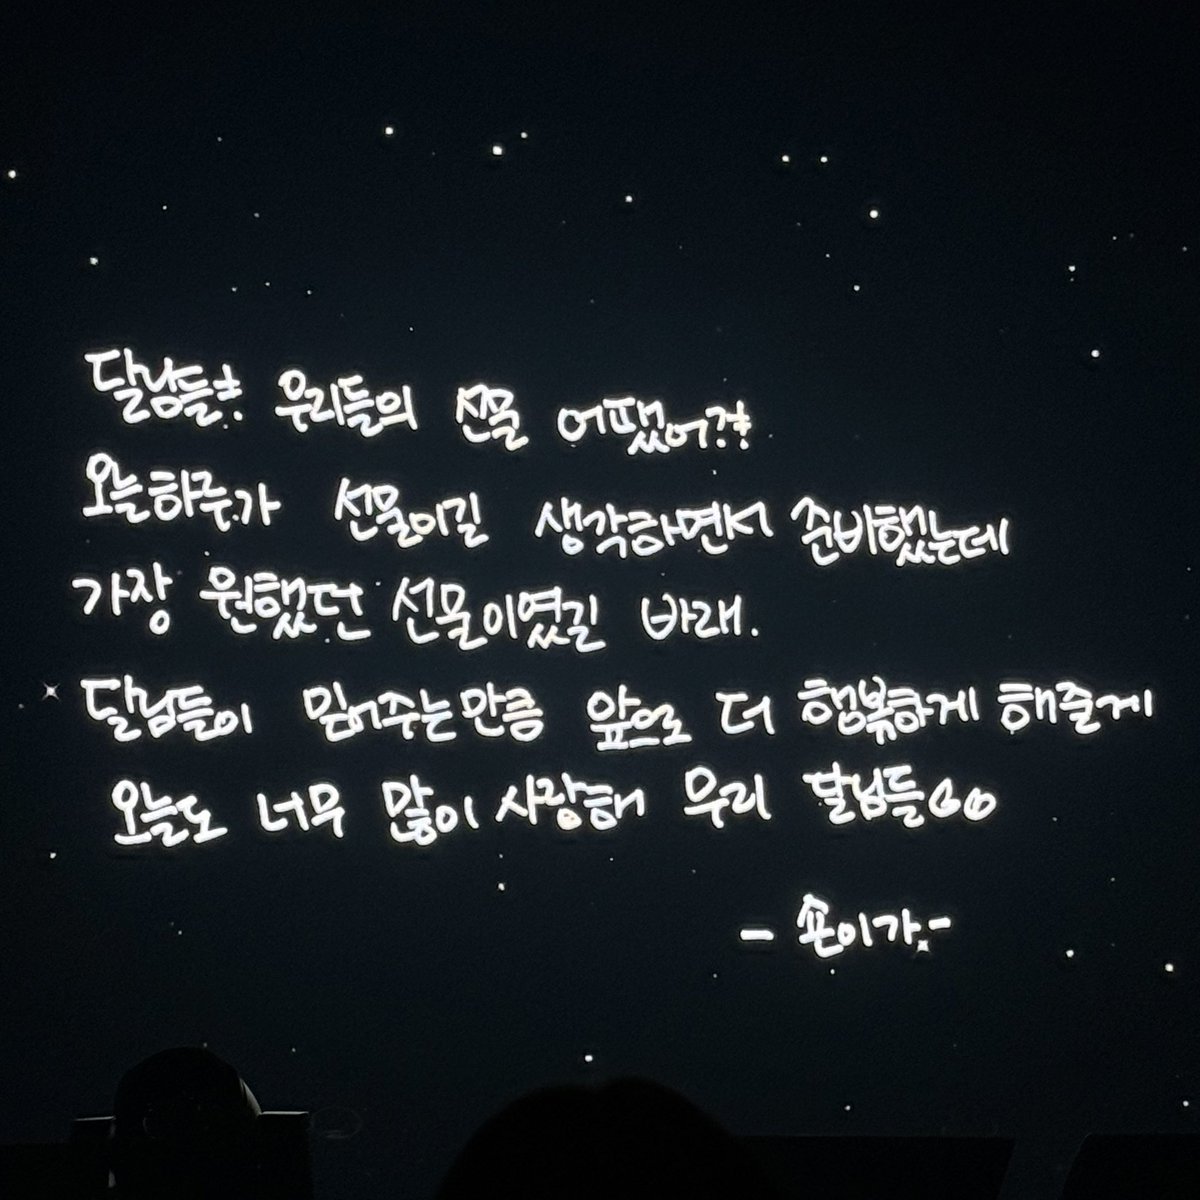 달님들! 우리들의 선물 어땠어?!
오늘하루가 선물이길 생각하면서 준비했는데
가장 원했던 선물이였길 바래.
달님들이 믿어주는만큼 앞으로 더 행복하게 해줄게
오늘도 너무 많이 사랑해 우리 달님들
- 숀이가.-